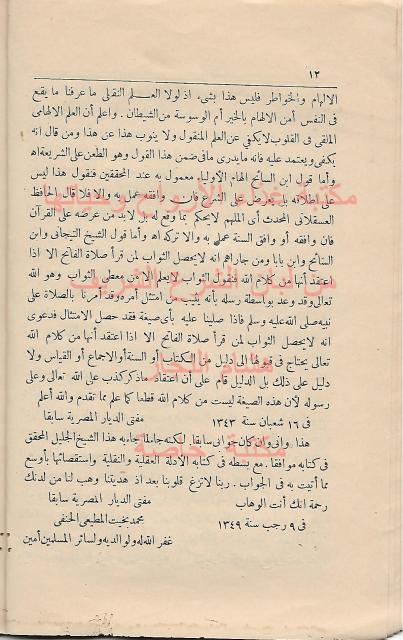 ١٢
الالهام والخواطر فليس هذا بشىء اذ لولا العلم النقلى ما عرفنا ما يقع
فى النفس أمن الالهام بالخير أم الوسوسة من الشيطان . واعلم أن العلم الالهامى
الملقى فى القلوب لا يكفى عن العلم المنقول ولا ينوب هذا عن هذا ومن قال انه
يكفى ويعتمد عليه فانه ما يدرى ما فى ضمن هذا القول وهو الطعن على الشريعة اه
وأما قول ابن السائح الهام الأولياء معمول به عند المحققين فنقول هذا ليس
على اطلاقه بل يعرض على الشرع فان وافقه عمل به والا فلا قال الحافظ
العسقلانى المحدث أى الملهم لا يحكم بما وقع له بل لا بد من عرضه على القرآن
فان وافقه أو وافق السنة عمل به والا تركه اه وأما قول الشيخ التيجانى وابن
السائح وابن بابا ومن جاراهم انه لا يحصل الثواب لمن قرأ صلاة الفاتح الا اذا
اعتقد أنها من كلام الله فنقول الثواب لا يعلم الا من معطى الثواب وهو الله
تعالى وقد وعد بواسطة رسله بأنه يثيب من امتثل أمره وقد أمرنا بالصلاة على
نبيه صلى الله عليه وسلم فاذا صلينا عليه بأى صيغة فقد حصل الامتثال فدعوى
انه لا يحصل الثواب لمن قرأ صلاة الفاتح الا اذا اعتقد أنها من كلام الله
تعالى يحتاج فى قبولها الى دليل من الكتاب أو السنة أو الاجماع أو القياس ولا
دليل على ذلك بل الدليل قام على أن اعتقاد ما ذكر كذب على الله تعالى وعلى
رسوله لأن هذه الصيغة ليست من كلام الله قطعا كما علم مما تقدم والله أعلم
فى ١٦ شعبان سنة ١٣٤٣ مفتى الديار المصرية سابقا
هذا وانى وان كان جوابى سابقا لكنه جاء لما جاء به هذا الشيخ الجليل المحقق
فى كتابه موافقا . مع بسطه فى كتابه الأدلة العقلية والنقلية واستقصائها بأوسع
مما أتيت به فى الجواب . ربنا لا تزغ قلوبنا بعد اذ هديتنا وهب لنا من لدنك
رحمة انك أنت الوهاب مفتى الديار المصرية سابقا
فى ٩ رجب سنة ١٣٤٩ محمد بخيت المطيعى الحنفى
غفر الله له ولوالديه ولسائر المسلمين أمين